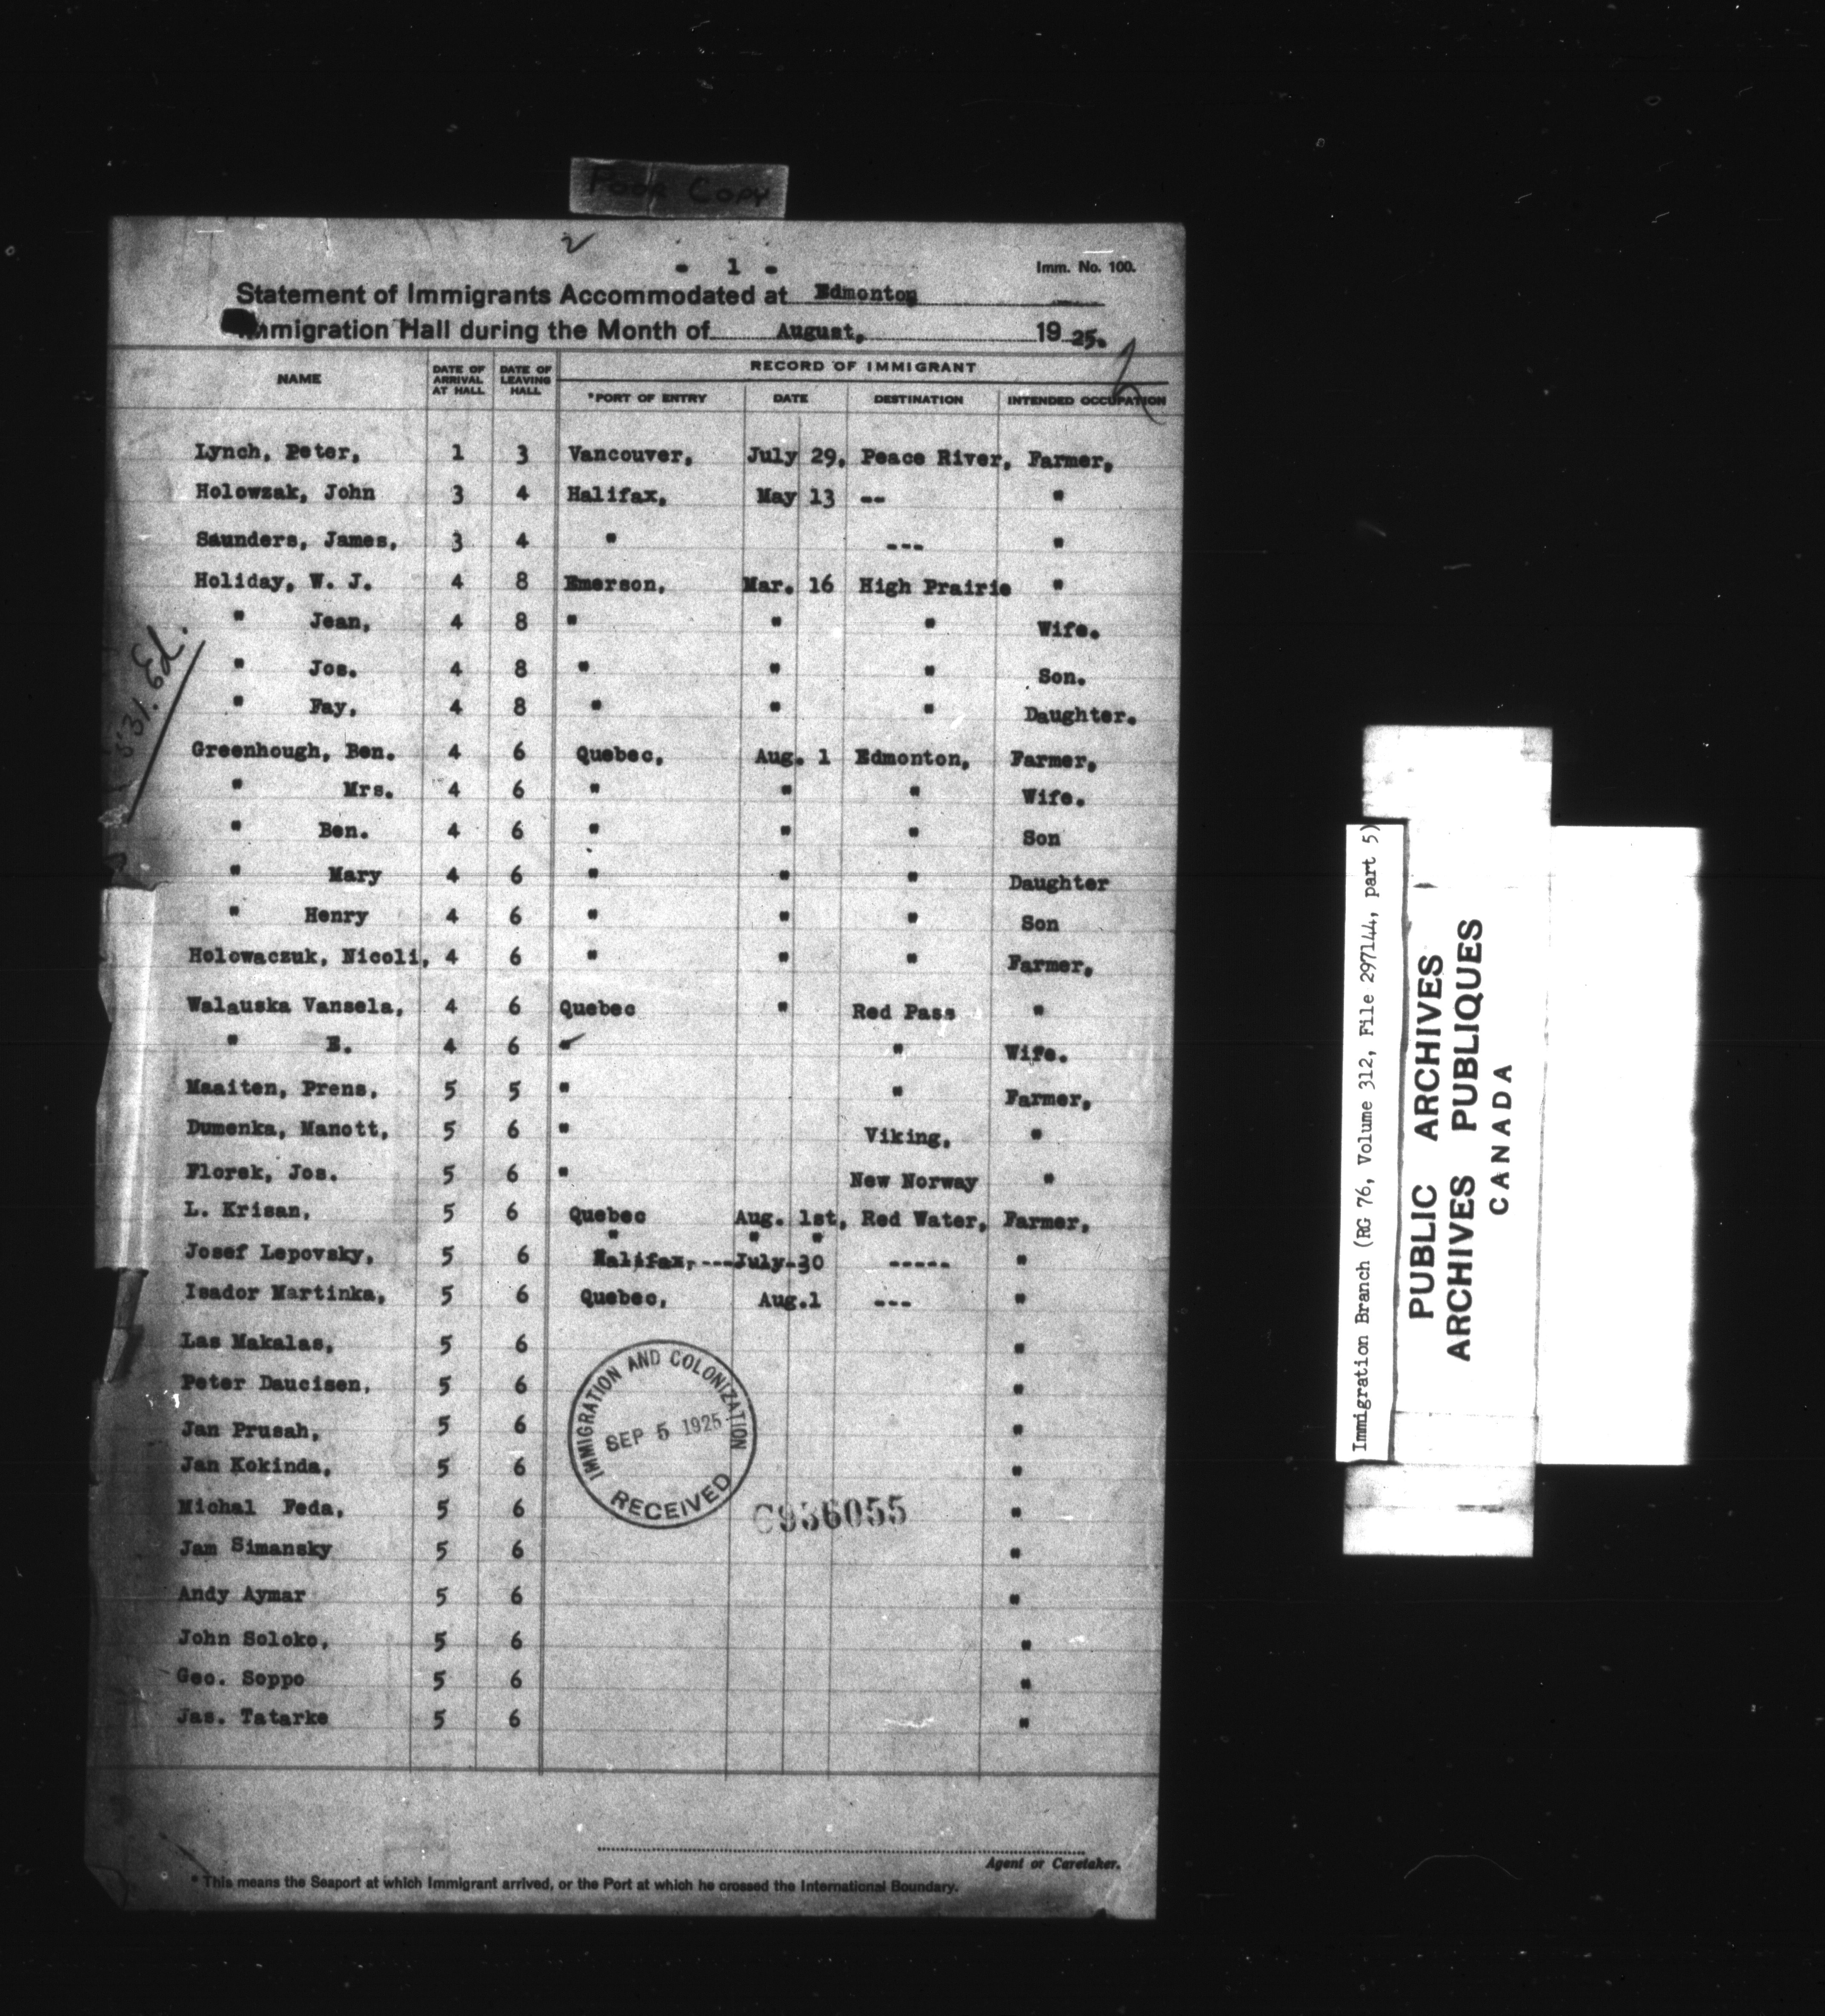 Poor Copy
2
- 1 -
Imm. No. 100.
Statement of Immigrants Accommodated at Edmonton
Immigration Hall during the Month of August, 1925.
NAME DATE OF ARRIVAL AT HALL DATE OF LEAVING HALL RECORD OF IMMIGRANT
*PORT OF ENTRY DATE DESTINATION INTENDED OCCUPATION
Lynch, Peter, 1 3 Vancouver, July 29, Peace River, Farmer,
Holowzak, John 3 4 Halifax, May 13 -- "
Saunders, James, 3 4 " --- "
Holiday, W. J. 4 8 Emerson, Mar. 16 High Prairie "
" Jean, 4 8 " " " Wife.
" Jos. 4 8 " " " Son.
" Fay, 4 8 " " " Daughter.
Greenhough, Ben. 4 6 Quebec, Aug. 1 Edmonton, Farmer,
" Mrs. 4 6 " " " Wife.
" Ben. 4 6 " " " Son
" Mary 4 6 " " " Daughter
" Henry 4 6 " " " Son
Holowaczuk, Nicoli, 4 6 " " " Farmer,
Walauska Vansela, 4 6 Quebec " Red Pass "
" E. 4 6 " " Wife.
Maaiten, Prens, 5 5 " " Farmer,
Dumenka, Manott, 5 6 " Viking, "
Florek, Jos. 5 6 " New Norway "
L. Krisan, 5 6 Quebec Aug. 1st, Red Water, Farmer,
" " "
Josef Lepovsky, 5 6 Halifax, --- July-30 ----- "
Isador Martinka, 5 6 Quebec, Aug.1 --- "
Las Makalas, 5 6 "
Peter Daucisen, 5 6 "
Jan Prusah, 5 6 "
Jan Kokinda, 5 6 "
Michal Feda, 5 6 "
Jam Simansky 5 6 "
Andy Aymar 5 6 "
John Soloko, 5 6 "
Geo. Soppo 5 6 "
Jas. Tatarke 5 6 "
IMMIGRATION AND COLONIZATION
SEP 5 1925
RECEIVED
C936055
Agent or Caretaker.
* This means the Seaport at which Immigrant arrived, or the Port at which he crossed the International Boundary.
Immigration Branch (RG 76, Volume 312, File 297144, part 5)
PUBLIC ARCHIVES
ARCHIVES PUBLIQUES
CANADA